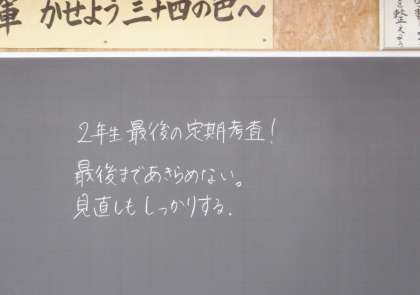 軍 かせよう三十四の巴〜
2年生 最後の定期考査!
最後まであきらめない。
見直しも しっかりする.